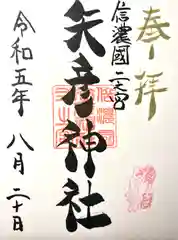 奉拝
信濃國二之宮
矢彦神社
令和五年八月二十日